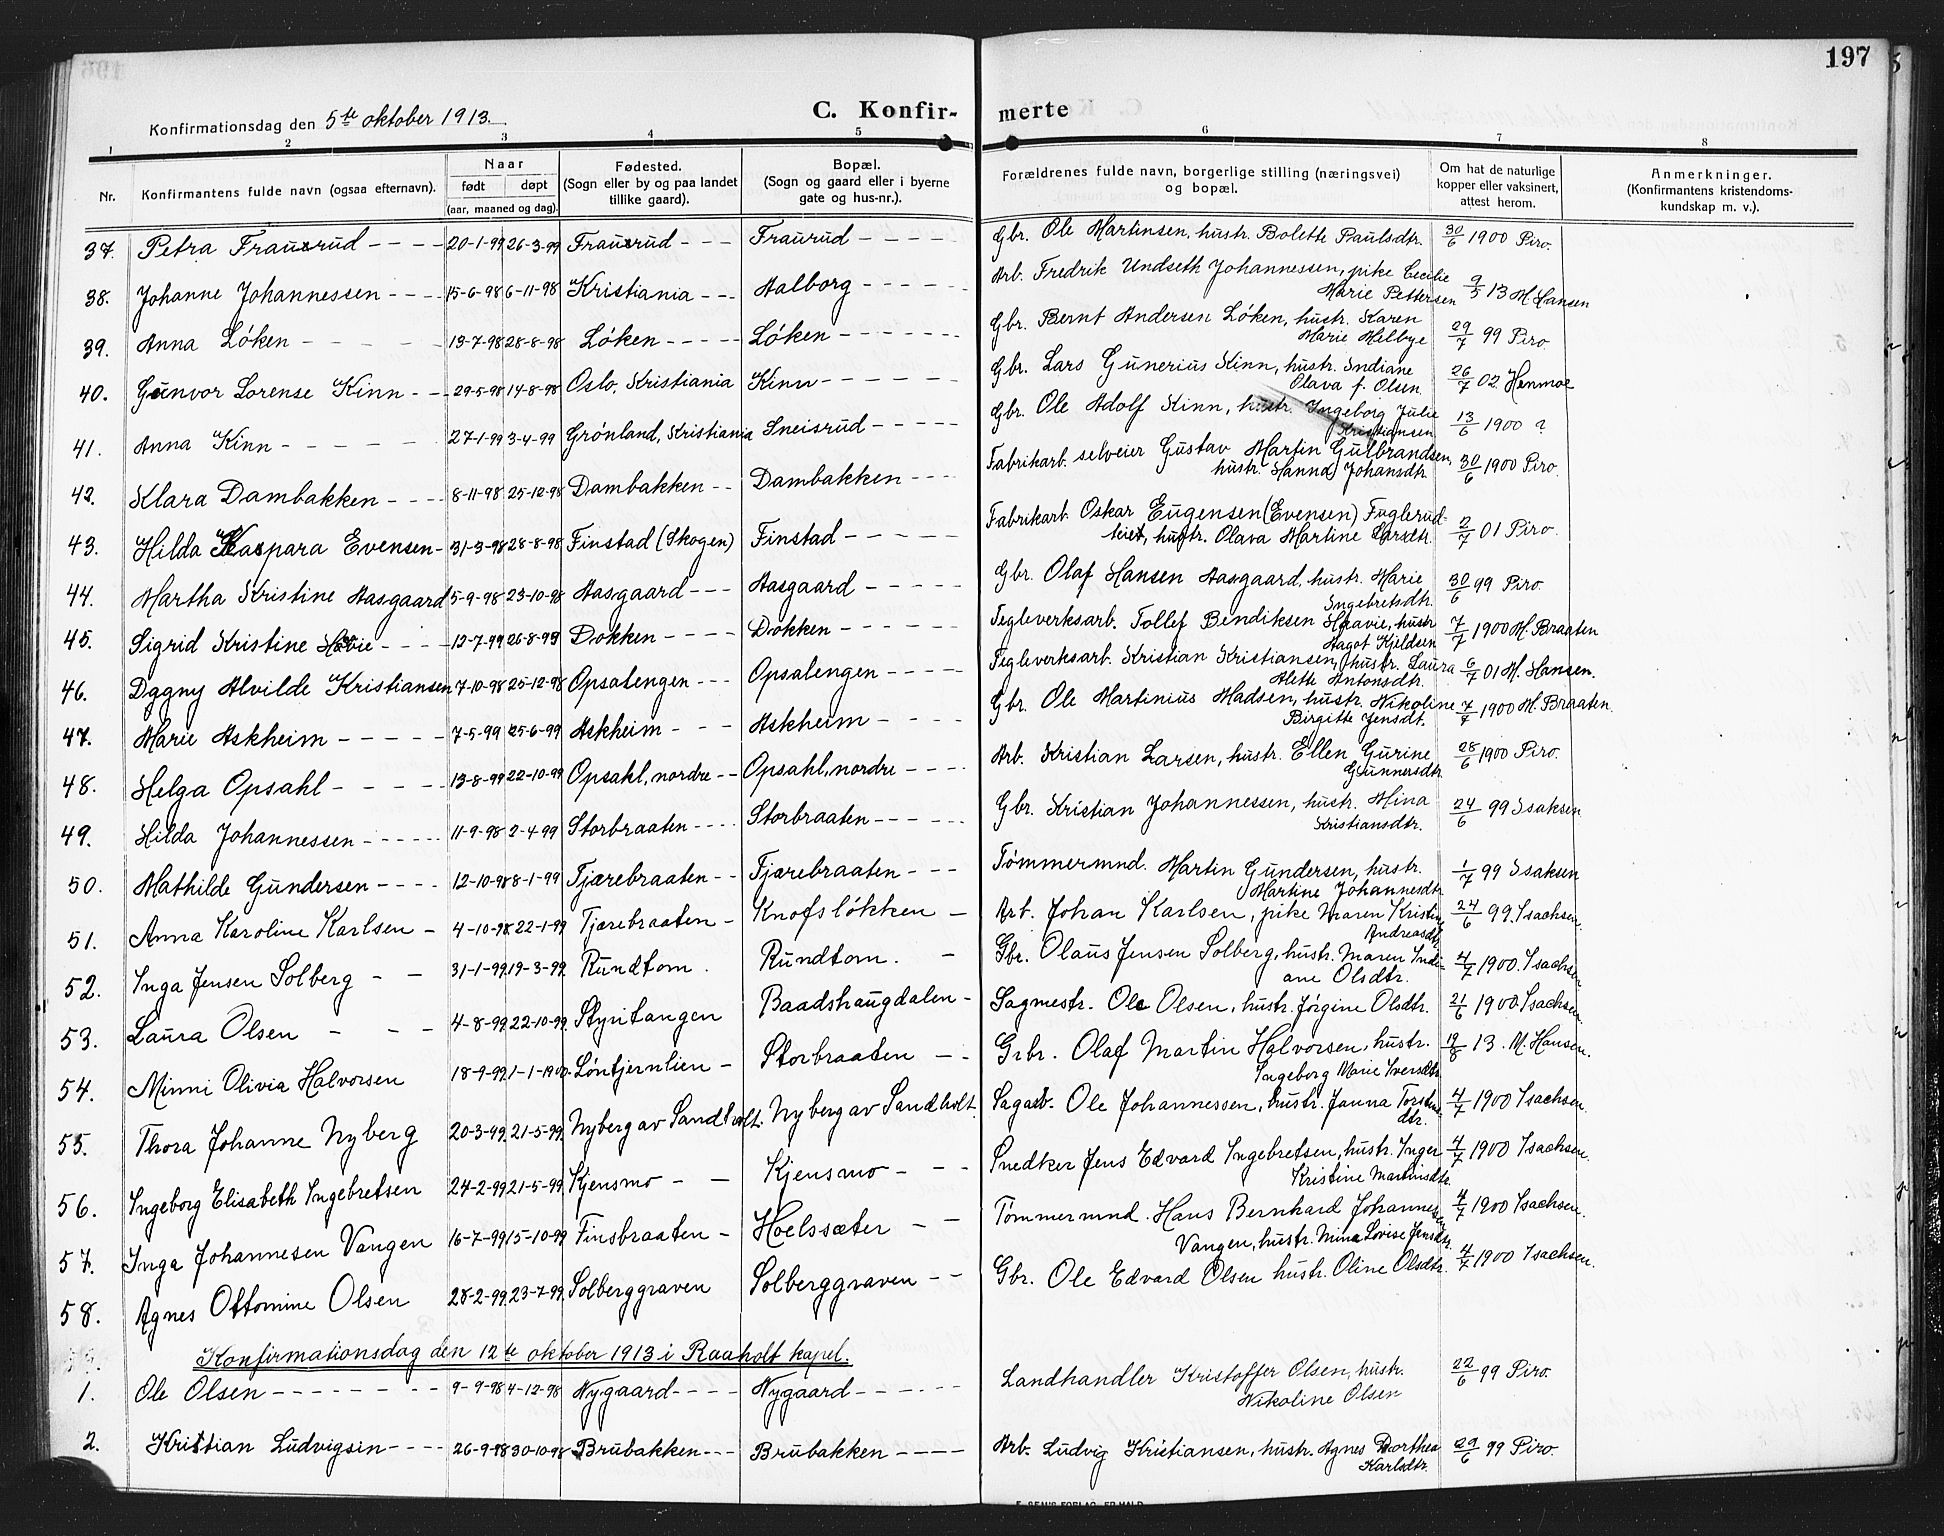 197
Konfirmationsdag den 5te oktober 1913.
C. Konfir- merte
1 2 3 4 5 6 7 8
Nr. Konfirmantens fulde navn (ogsaa efternavn). Naar født døpt (aar, maaned og dag). Fødested. (Sogn eller by og paa landet tillike gaard). Bopæl. (Sogn og gaard eller i byerne gate og hus-nr.). Forældrenes fulde navn, borgerlige stilling (næringsvei) og bopæl. Om hat de naturlige kopper eller vaksinert, attest herom. Anmerkninger. (Konfirmantens kristendoms-kundskap m. v.).
37. Petra Fraurud 20-1-99 26-3-99 Fraurud Fraurud Gbr. Ole Martinsen, hustr. Bolette Paulsdtr. 30/6 1900 Piro.
38. Johanne Johannessen 15-6-98 6-11-98 Kristiania Aalborg Arb. Fredrik Undseth Johannessen, pike Cecilie Marie Pettersen 9/5 13 M. Hansen
39. Anna Løken 13-7-98 28-8-98 Løken Løken Gbr. Bernt Andersen Løken, hustr. Karen Marie Melbye 29/7 99 Piro
40. Gunvor Lorense Kinn 29-5-98 14-8-98 Oslo, Kristiania Kinn Gbr. Lars Gunerius Kinn, hustr. Indiane Olava f. Olsen 26/7 02 Henmoe
41. Anna Kinn 27-1-99 3-4-99 Grønland, Kristiania Sneisrud Gbr. Ole Adolf Kinn, hustr. Ingeborg Julie Kristiansen 13/6 1900 ?
42. Klara Dambakken 8-11-98 25-12-98 Dambakken Dambakken Fabrikarb. selveier Gustav Martin Gulbrandsen, hustr. Hanna Johansdtr. 30/6 1900 Piro.
43. Hilda Kaspara Evensen 31-3-98 28-8-98 Finstad (Skogen) Finstad Fabrikarb. Oskar Eugensen (Evensen) Fuglerud-teiet, hustr. Olava Martine Larsdtr. 2/7 01 Piro.
44. Martha Kristine Aasgaard 5-9-98 23-10-98 Aasgaard Aasgaard Gbr. Olaf Hansen Aasgaard, hustr. Marie Ingebretsdtr. 30/6 99 Piro.
45. Sigrid Kristine Høvie 12-7-99 26-8-99 Dokken Dokken Teglverksarb. Tollef Bendiksen Haavie, hustr. Aagot Kjeldsen 7/7 1900 M. Braaten
46. Dagny Alvilde Kristiansen 7-10-98 25-12-98 Opsalengen Opsalengen Teglverksarb. Kristian Kristiansen, hustr. Laura Alette Antonsdtr. 6/7 01 M. Hansen.
47. Marie Askheim 7-5-99 25-6-99 Askheim Askheim Gbr. Ole Martinius Madsen, hustr. Nikoline Birgitte Jensdt. 7/7 1900 M. Braaten.
48. Helga Opsahl 13-8-99 22-10-99 Opsahl, nordre Opsahl, nordre Arb. Kristian Larsen, hustr. Ellen Gurine Gunnersdtr. 28/6 1900 Piro.
49. Hilda Johannessen 11-9-98 2-4-99 Storbraaten Storbraaten Gbr. Kristian Johannessen, hustr. Mina Kristiansdtr. 24/6 99 Isaksen
50. Mathilde Gundersen 12-10-98 8-1-99 Tjærebraaten Tjærebraaten Tømmermnd. Martin Gundersen, hustr. Martine Johannesdtr. 1/7 99 Isaksen
51. Anna Karoline Karlsen 4-10-98 22-1-99 Tjærebraaten Knofsløkken Arb. Johan Karlsen, pike Maren Kristine Andreasdtr. 24/6 99. Isachsen.
52. Inga Jensen Solberg 31-1-99 19-3-99 Rundtom. Rundtom. Gbr. Olaus Jensen Solberg, hustr. Maren Indiane Olsdtr. 4/7 1900. Isachsen
53. Laura Olsen 4-8-99 22-10-99 Styritangen Baadshaugdalen Sagmestr. Ole Olsen, hustr. Jørgine Olsdtr. 21/6 1900. Isachsen.
54. Minni Olivia Halvorsen 18-9-99 1-1-1900 Løntjernlien Storbraaten Grbr. Olaf Martin Halvorsen, hustr. Ingeborg Marie Iversdtr. 19/8 13. M. Hansen.
55. Thora Johanne Nyberg 20-3-99 21-5-99 Nyberg av Sandholt. Nyberg av Sandholt. Sagarb. Ole Johannessen, hustr. Janna Torstendtr. 4/7 1900 Isachsen.
56. Ingeborg Elisabeth Ingebretsen 24-2-99 21-5-99 Kjensmo Kjensmo Snedker Jens Edvard Ingebretsen, hustr. Inger Kristine Martinsdtr. 4/7 1900 Isachsen.
57. Inga Johannesen Vangen 16-7-99 15-10-99 Finsbraaten Hoelssæter Tømmermnd. Hans Bernhard Johannesen Vangen, hustr. Mina Lovise Jensdtr. 4/7 1900 Isachsen.
58. Agnes Ottomine Olsen 28-2-99 23-7-99 Solberggraven Solberggraven Gbr. Ole Edvard Olsen hustr. Oline Olsdtr. 4/7 1900 Isachsen.
Konfirmationsdag den 12te oktober 1913 i Raaholt kapel.
1. Ole Olsen 9-9-98 4-12-98 Nygaard Nygaard Landhandler Kristoffer Olsen, hustr. Nikoline Olsen 22/6 99 Piro.
2. Kristian Ludvigsin 26-9-98 30-10-98 Brubakken Brubakken Arb. Ludvig Kristiansen, hustr. Agnes Dorthea Karlsdtr. 29/6 99 Piro.